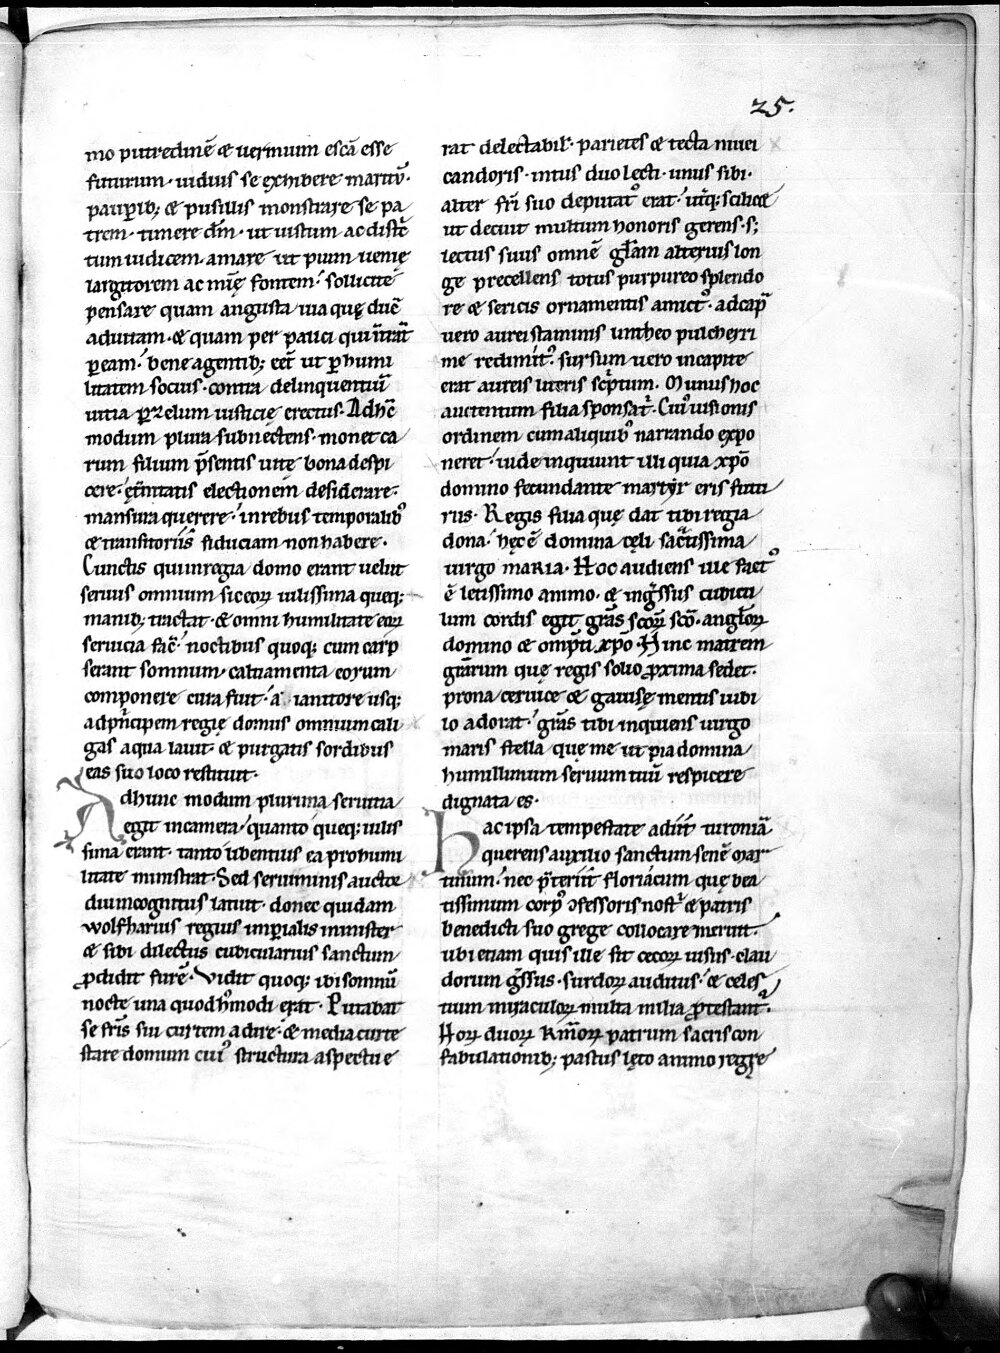 25.
mo putredinē & uermium escā esse
futurum· uiduis se exhibere maritū·
paup̄ib; & pusillis monstrare se pa
trem· timere dm̄· ut uistum ac distc̄
tum iudicem· amare ut pium uenię
largitorem ac mīę fontem· sollicite
pensare quam angusta uia quę duc̄
ad uitam· & quam per pauci qui
p̱ eam· bene agentib; eēt ut p̱ humi
litatem socius· contra delinquentiū
uitia p̱ zelum iusticię erectus· Adhc̄
modum plura subnectens· monet ca
rum filium p̄sentis uitę bona despi
cere· ęt̄nitatis electionem desiderare·
mansura querere· in rebus temporalibꝰ
& transitoriis fiduciam non habere·
Cunctis qui in regia domo erant uelut
seruus omnium sic eoꝝ uilissima queq;
manib; tractat· & omni humilitate eoꝝ
seruicia fac̄· noctibus quoq; cum carp
serant somnum· caltiamenta eorum
componere cura fuit· a ianitore usq;
ad p̄ncipem regię domus omnium cali
gas aqua lauit· & purgatis sordibus
eas suo loco restituit·
Adhunc modum plurima seruitia
egit in camera· quanto queq; uilis
sima erant· tanto libentius ea pro humi
litate ministrat· Sed serui minis aucte
diu incognitus latuit· donec quidam
wolfharius regius imp̱ialis minister
& sibi dilectus cubicularius sanctum
ꝓdidit furē· Vidit quoq; ibi somnū
nocte una quod hꝰmodi erat· Putabat
se frīs sui curtem adire· & media curte
stare domum cuiꝰ structura aspectu e
rat delectabil̄· parietes & tecta niuei
candoris· intus duo lecti· unus sibi·
alter fri suo deputatꝰ erat· utq; scilic&
ut decuit multum honoris gerens· s;
lectus suus omnē glam alterius lon
ge precellens totus purpureo splendo
re & sericis ornamentis amictꝰ· ad cap
uero aurei staminis limbeo pulcherri
me redimitꝰ· sursum uero in capite
erat aureis literis scptum· Munus hoc
auctentum filia sponsat· Cuiꝰ uisionis
ordinem cum aliquibꝰ narrando expo
neret· uide inquiunt illi quia xp̄o
domino fecundante martyr eris futu
rus· Regis filia quę dat tibi regia
dona· hęc ē domina cęli sacratissima
uirgo maria· Hoc audiens ille factꝰ
ē letissimo animo· & ingssus cubicu
lum cordis egit grās scoꝝ scō· angloꝝ
domino & omp̄ti xp̄o· Hinc matrem
grarum quę regis solio ꝓxima sedet·
prona ceruice & gauisę mentis iubi
lo adorat· grās tibi inquiens uirgo
maris stella quę me ut pia domina
humillimum seruum tuū respicere
dignata es·
Hac ipsa tempestate adiit turoniā
querens auxilio sanctum senē mar
tinum· nec p̄teriit floriacum quę bea
tissimum corpꝰ ꝯfessoris nostꝰ & patris
benedicti suo grege collocare meruit·
ubi etiam quis ille fit cecoꝝ uisus· clau
dorum gssus· surdoꝝ auditus· & celes
tium miraculoꝝ multa milia ꝓtestantꝰ·
Hoꝝ duoꝝ kmoꝝ patrum sacris con
fabulationib; pastus lęto animo regre